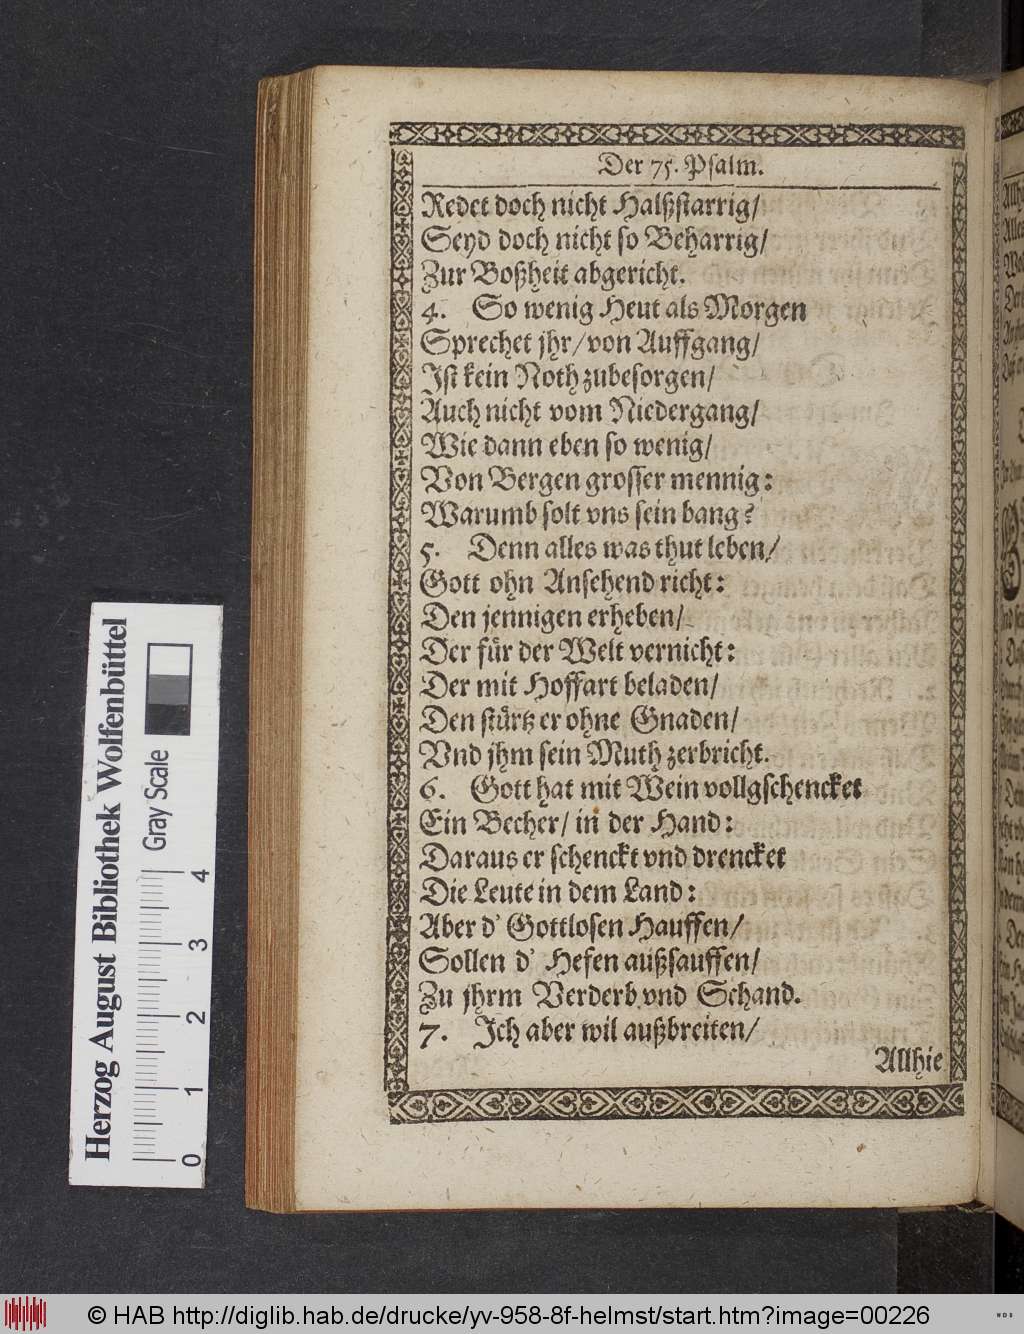 Der 75. Psalm.
Redet doch nicht Halßstarrig/
Seyd doch nicht so Beharrig/
Zur Boßheit abgericht.
4. So wenig Heut als Morgen
Sprechet jhr/ von Auffgang/
Ist kein Noth zubesorgen/
Auch nicht vom Niedergang/
Wie dann eben so wenig/
Von Bergen grosser mennig:
Warumb solt vns sein bang?
5. Denn alles was thut leben/
Gott ohn Ansehend richt:
Den jennigen erheben/
Der für der Welt vernicht:
Der mit Hoffart beladen/
Den stürtz er ohne Gnaden/
Vnd jhm sein Muth zerbricht.
6. Gott hat mit Wein vollgschencket
Ein Becher/ in der Hand:
Daraus er schenckt vnd drencket
Die Leute in dem Land:
Aber d' Gottlosen Hauffen/
Sollen d' Hefen außsauffen/
Zu jhrm Verderb vnd Schand.
7. Ich aber wil außbreiten/
Allhie
Herzog August Bibliothek Wolfenbüttel
Gray Scale
0 1 2 3 4
© HAB http://diglib.hab.de/drucke/yv-958-8f-helmst/start.htm?image=00226